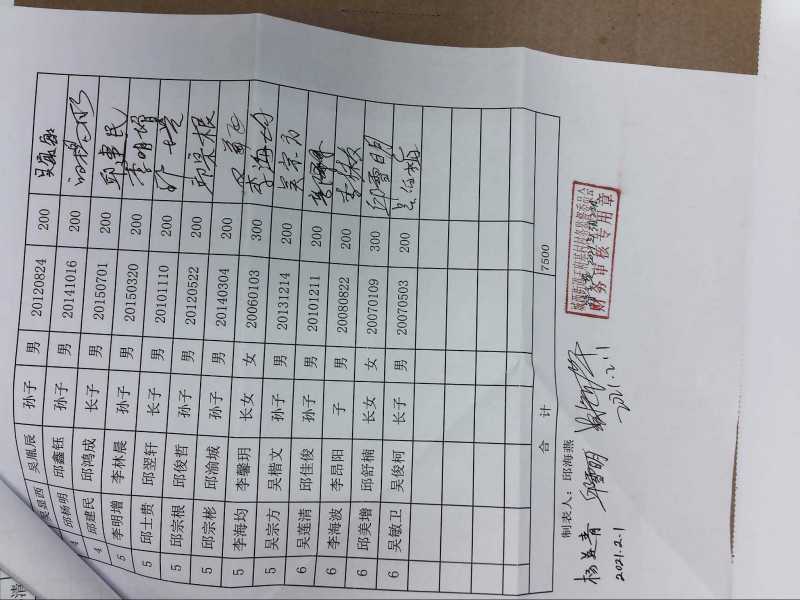 吴显西 吴胤辰 孙子 男 20120824 200
4 邱杨明 邱鑫钰 孙子 男 20141016 200
4 邱建民 邱鸿成 长子 男 20150701 200 邱建民
5 李明增 李林晨 孙子 男 20150320 200 李明增
5 邱士贵 邱翌轩 长子 男 20101110 200
5 邱宗根 邱俊哲 孙子 男 20120522 200 邱宗根
5 邱宗彬 邱渝城 孙子 男 20140304 200
5 李海均 李馨玥 长女 女 20060103 300 李海均
5 吴宗方 吴楷文 孙子 男 20131214 200 吴宗方
6 吴莲清 邱佳俊 孙子 男 20101211 200
6 李海波 李昂阳 子 男 20080822 200
6 邱美增 邱舒楠 长女 女 20070109 300 邱雪明
6 吴敏卫 吴俊柯 长子 男 20070503 200
合 计 7500
制表人：邱海燕
杨益青 邱雪明
2021.2.1 2021.2.11
财务审核专用章
清